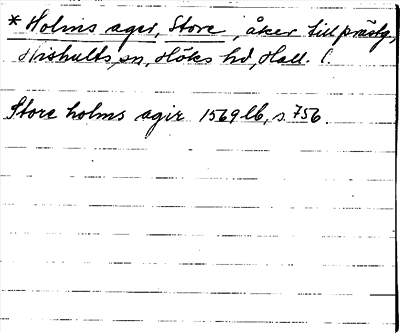 * Holms ager, Store, åker till prästg,
Hishults sn, Höks hd, Hall. l.
Store holms agir 1569 lb, s. 756.